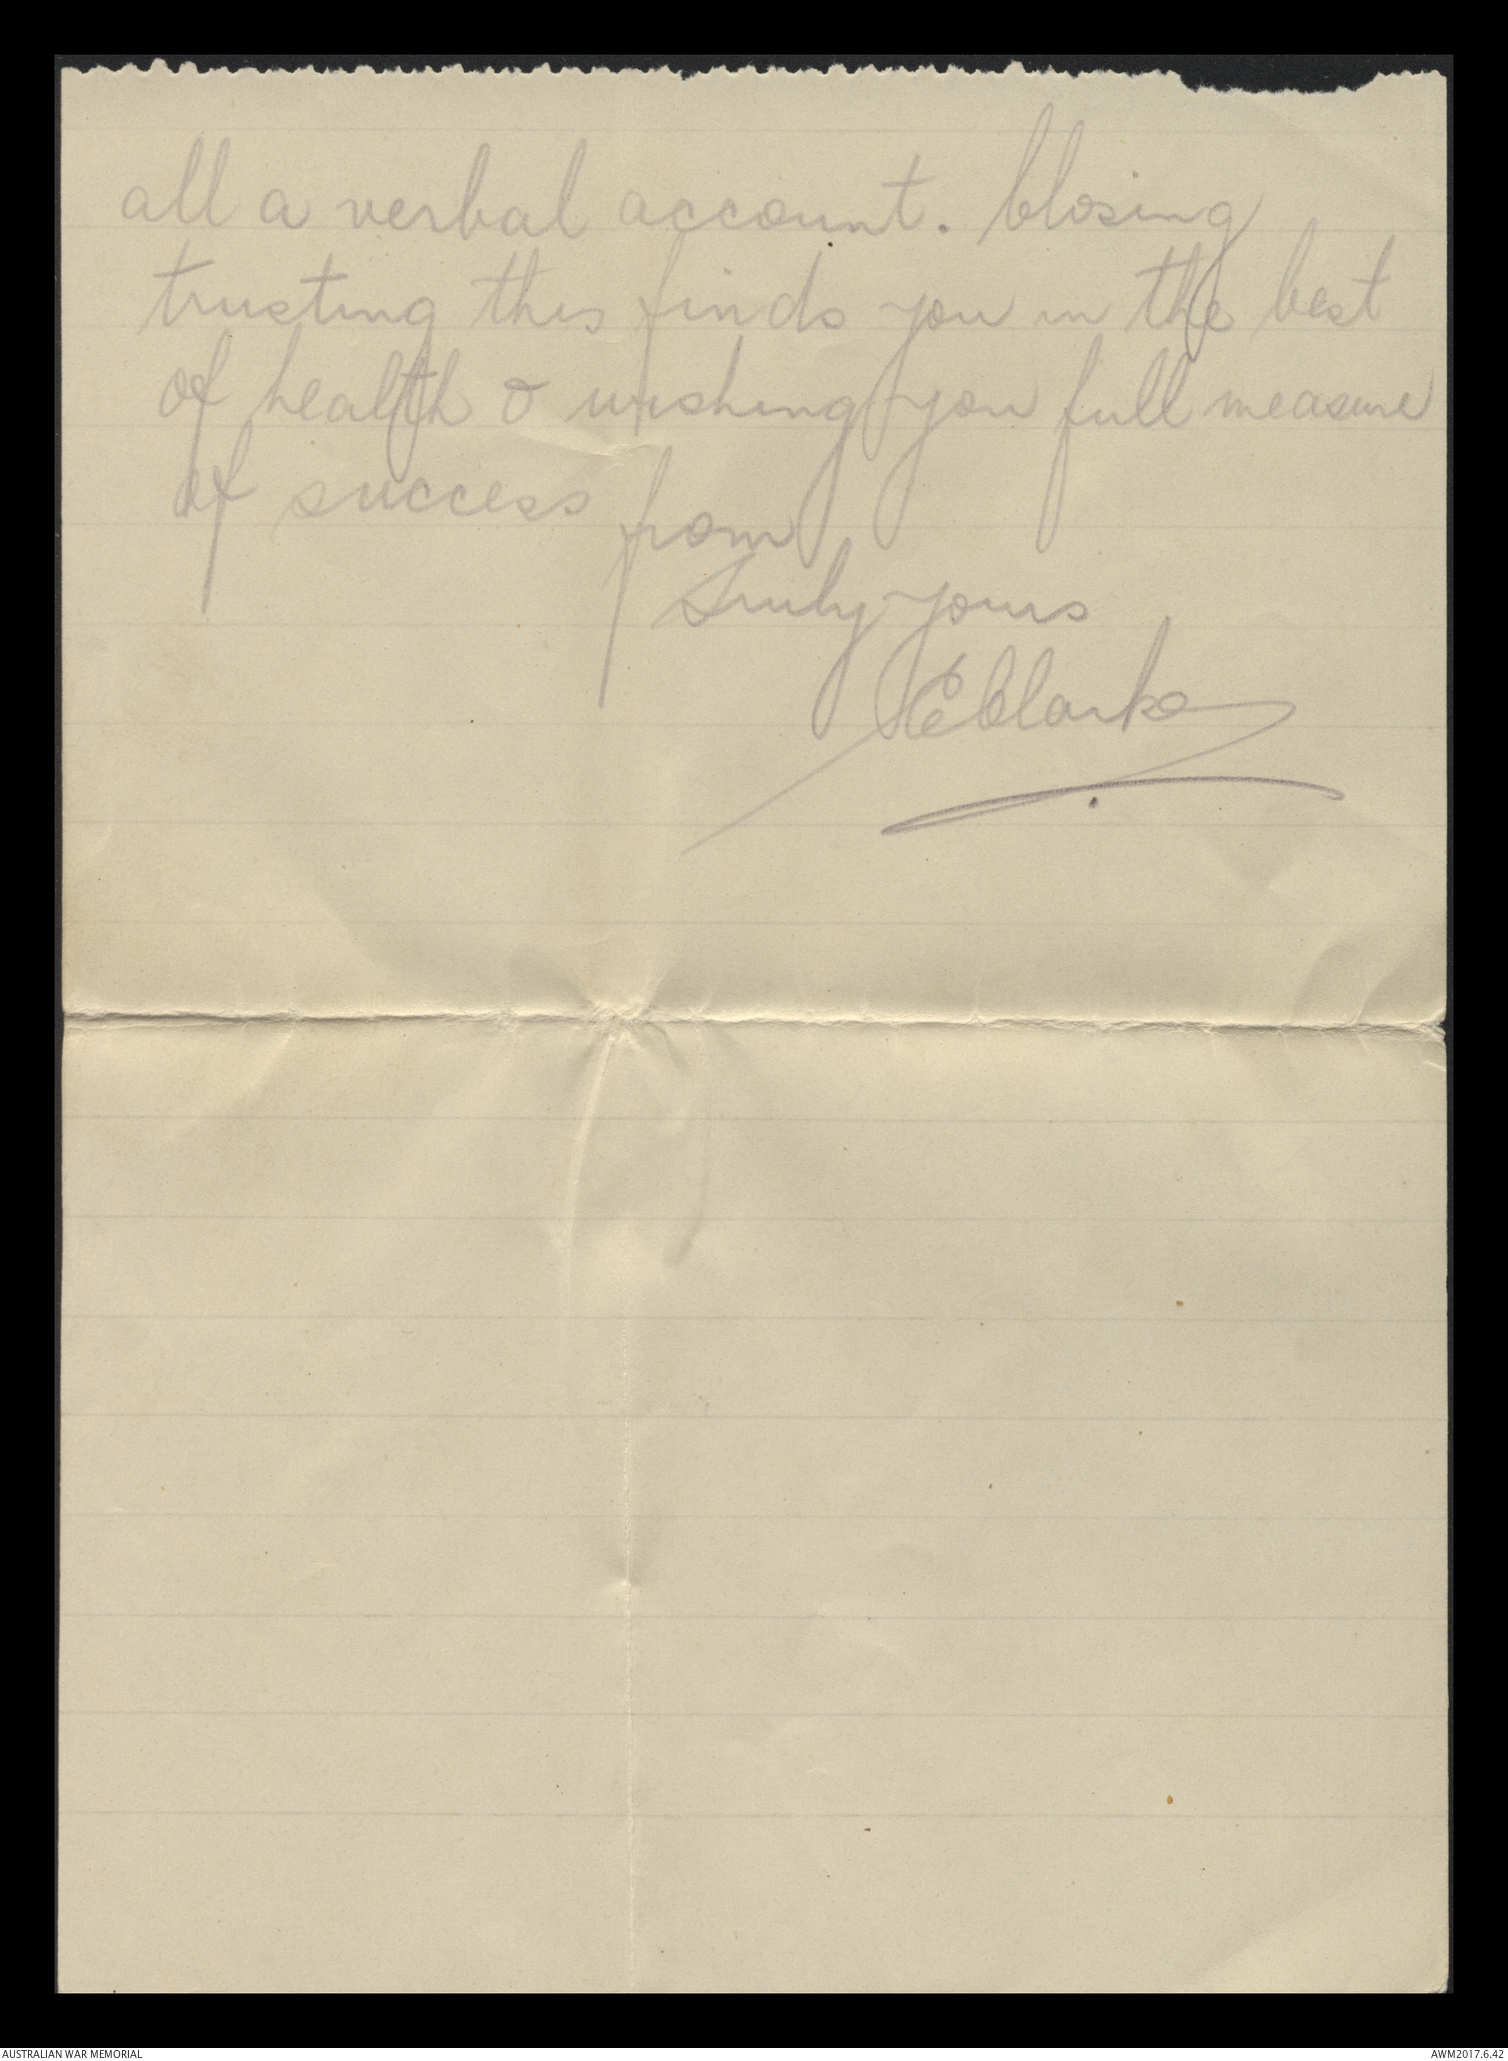 all a verbal account. Closing
trusting this finds you in the best
of health & wishing you full measure
of success from
Truly yours
E Clarke
AUSTRALIAN WAR MEMORIAL
AWM2017.6.42